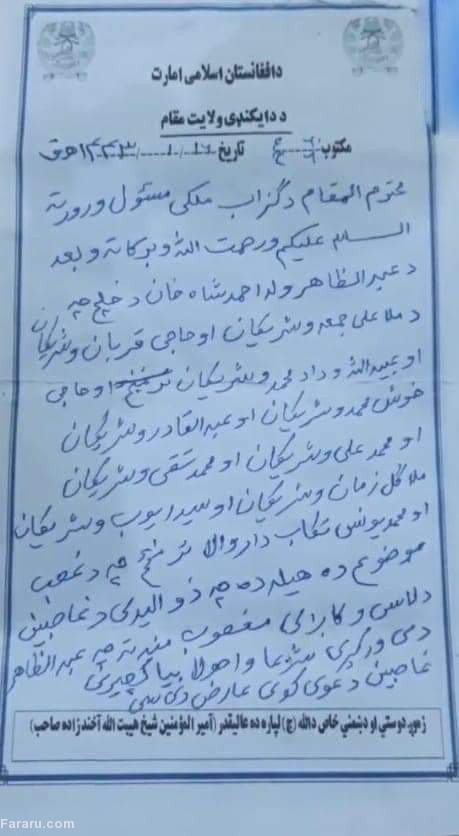 دافغانستان اسلامی امارت
د دایکندی ولایت مقام
مکتوب: تاریخ ۱۶/۱/۱۴۴۳ هـ ق
محترم المقام د گزاب ملکی مسئول ورورته
السلام علیکم ورحمت الله وبرکاته وبعد
د عبدالظاهر ولد احمدشاه خان د خلج چه
د ملا علی جمعه وشریکان او حاجی قربان وشریکان
او عبیدالله و داد محمد وشریکان او حاجی
خوش محمد وشریکان او عبدالقادر وشریکان
او محمد علی وشریکان او محمد تقی وشریکان
ملا گل زمان وشریکان او سید ایوب وشریکان
او محمد یونس تگاب دار والا تر منځ چه د غصب
موضوع ده هیله ده چه ذوالیدی د غاصبین
د لاس و کابرای مغصوب منه ته چه عبدالظاهر
دی ورکړی شی بیا گچیری
غاصبین دعوی کوی عارض دی سی
زموږ دوستي او دښمني خاص دالله (ج) لپاره ده عالیقدر (امیر المؤمنین شیخ هبیت الله آخند زاده صاحب)
Fararu.com